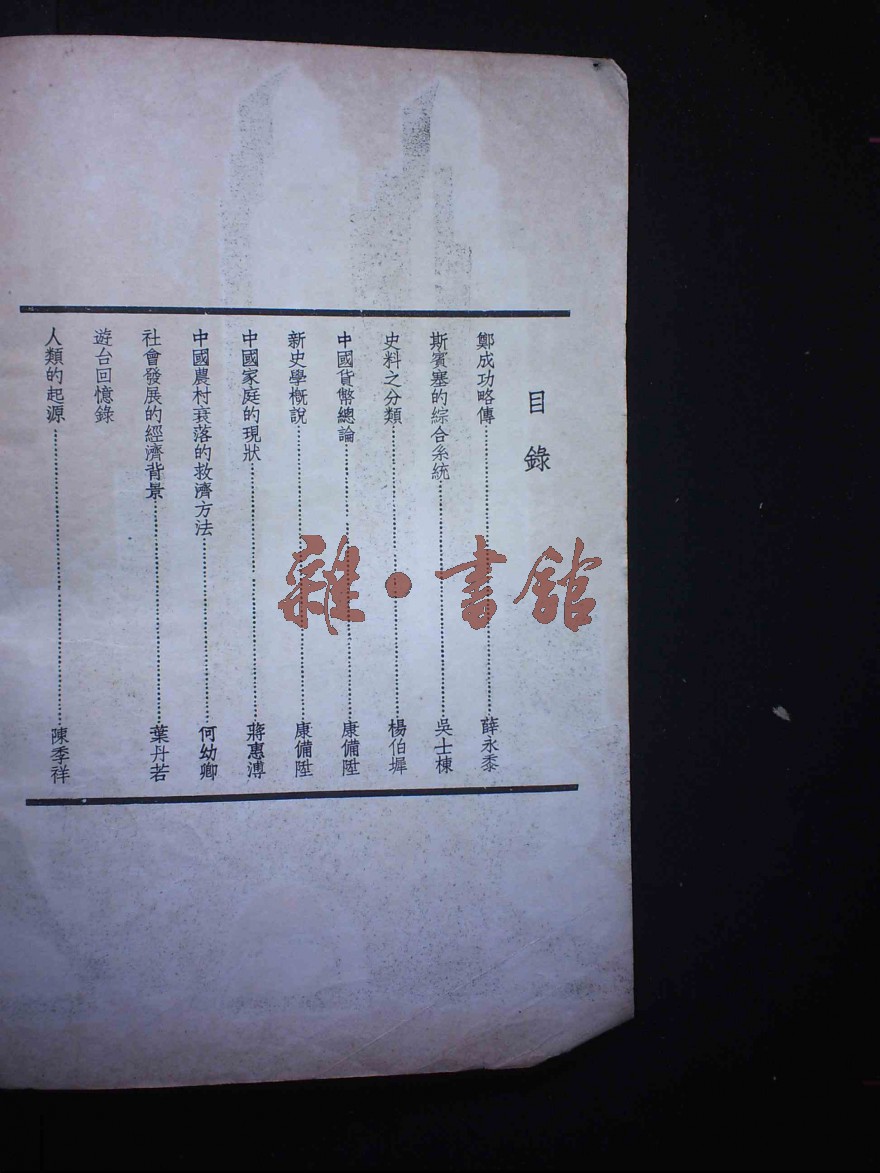 目錄
鄭成功略傳………薛永黍
斯賓塞的綜合系統………吳士棟
史料之分類………楊伯墀
中國貨幣總論………康備陞
新史學槪說………康備陞
中國家庭的現狀………蔣惠溥
中國農村衰落的救濟方法………何幼卿
社會發展的經濟背景………葉丹若
遊台回憶錄
人類的起源………陳季祥
雜·書館